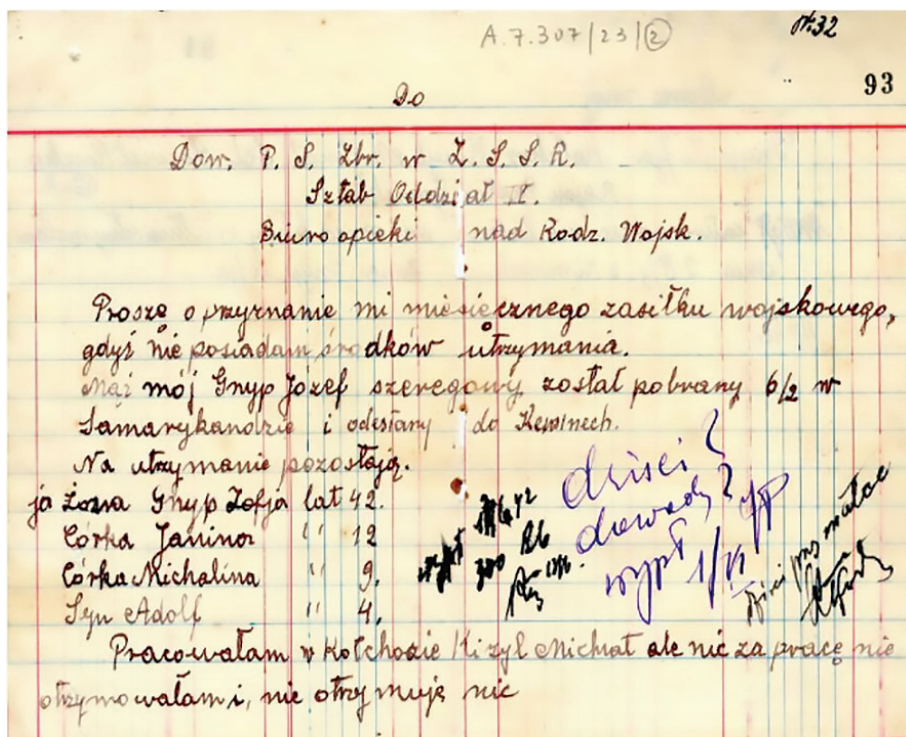 A.7.307/23/2
Nr. 32
93
Do
Dow. P. S. Zbr. w Z. S. S. R.
Sztab Oddział II.
Biuro opieki nad Rodz. Wojsk.
Proszę o przyznanie mi miesięcznego zasiłku wojskowego,
gdyż nie posiadam środków utrzymania.
Mąż mój Gnyp Jozef szeregowy został pobrany 6/2 w
Samarykandzie i odesłany do Kewinech.
Na utrzymanie pozostają.
ja Żona Gnyp Zofja lat 42.
Córka Janina " 12
Córka Michalina " 9.
Syn Adolf " 4.
300 Rb
dzieci?
dowody?
wypł 1/VI
Pracowałam w Kołchozie Kizył Michnat ale nic za pracę nie
otrzymowałam i, nie otrzymuję nic